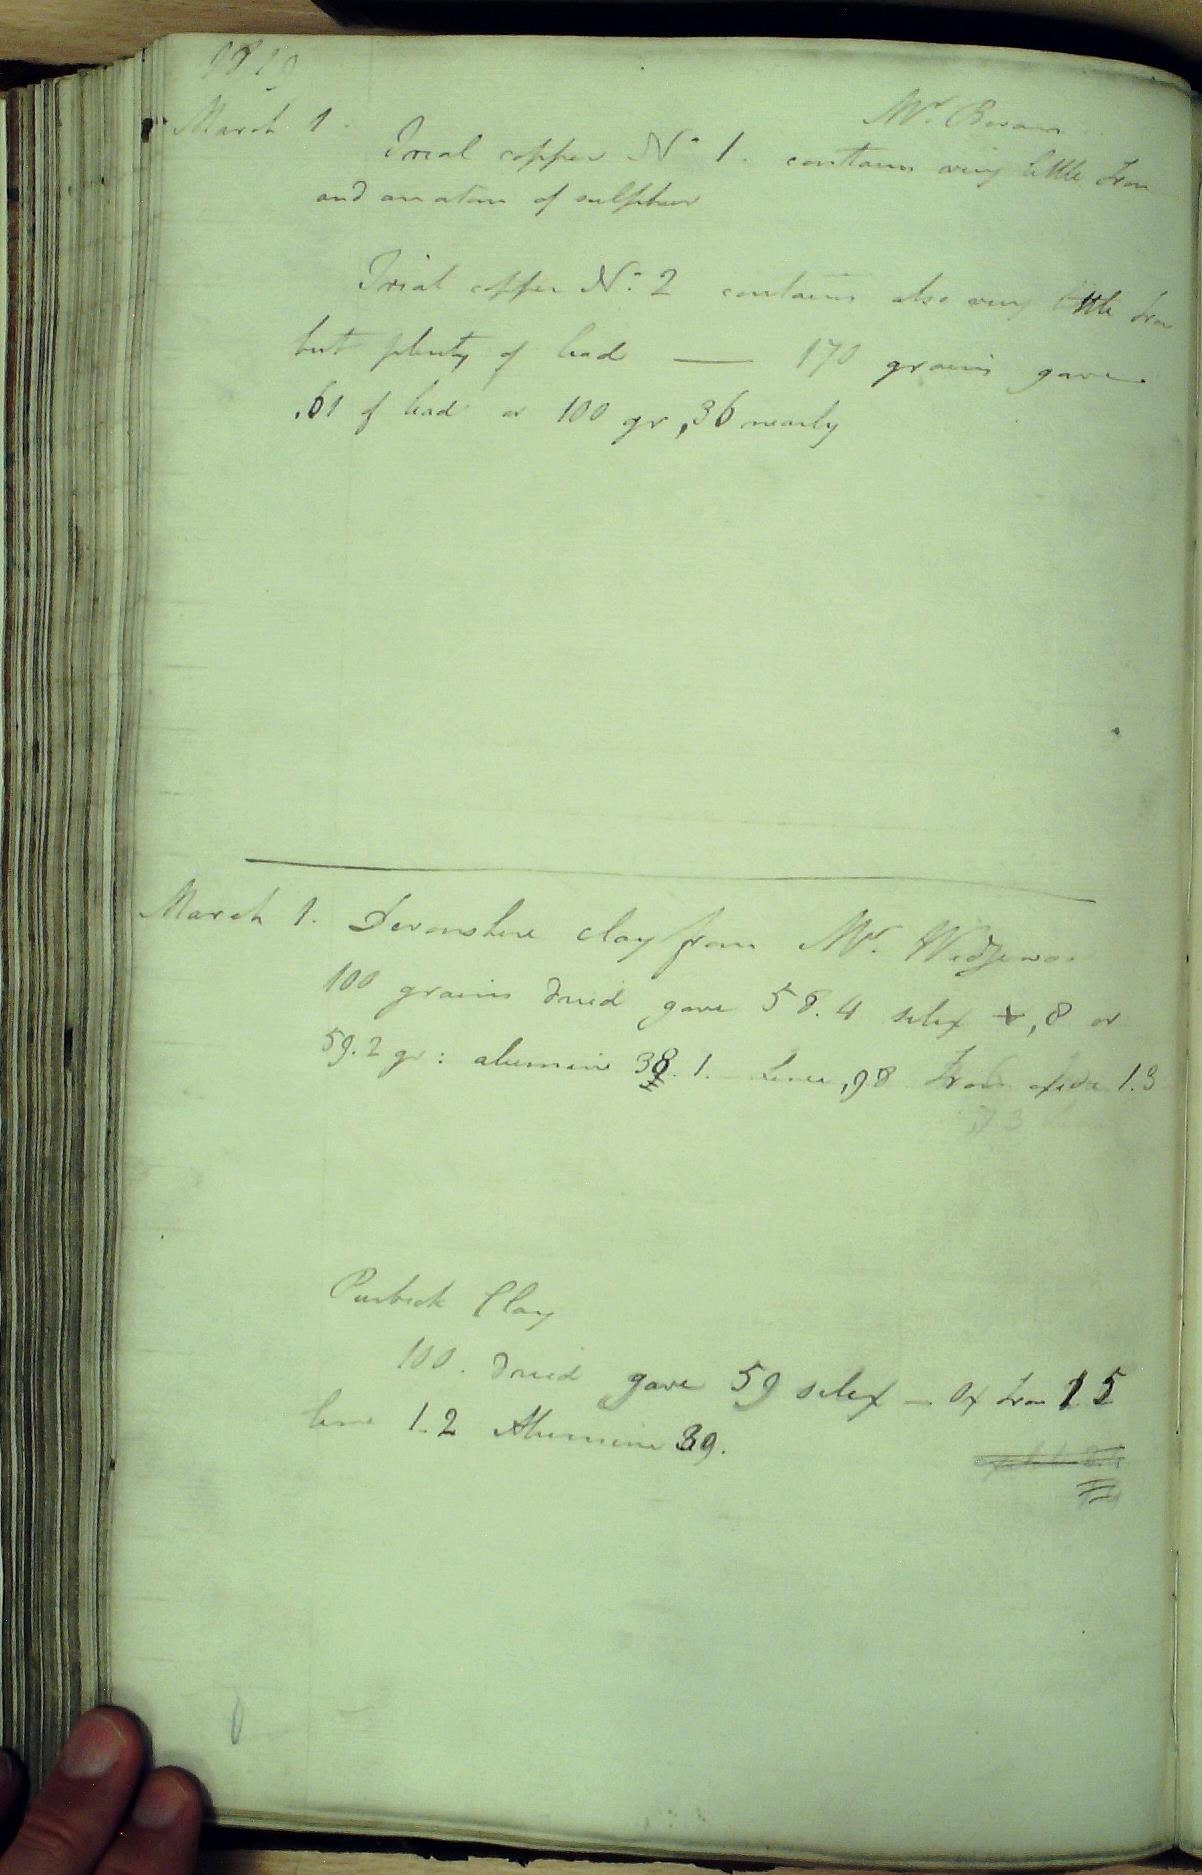 1819
March 1.
Mr. Bevan
Trial copper No 1. contains very little Iron
and an atom of sulphur
Trial copper No: 2 contains also very little Iron
but plenty of lead — 170 grains gave
.61 of lead or 100 gr ,36 nearly
March 1. Devonshire clay from Mr. Wedgewood
100 grains dried gave 58.4 silex + ,8 or
59.2 gr: alumine 38.1. Lime ,98 Iron oxide 1.3
Purbeck Clay
100. dried gave 59 silex — Ox Iron 1.5
lime 1.2 Alumine 39.